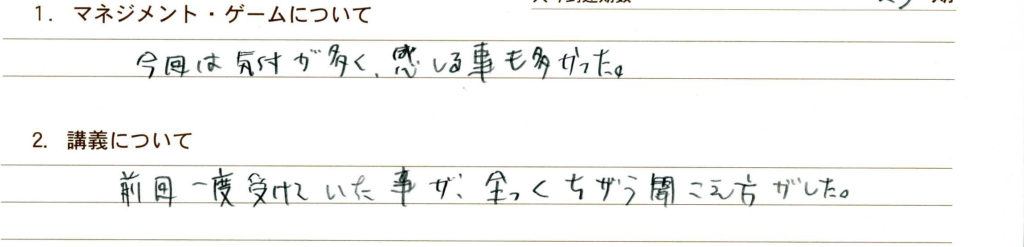 1. マネジメント・ゲームについて
今回は気付が多く、感じる事も多かった。
2. 講義について
前回一度受けていた事が、全っくちがう聞こえ方がした。